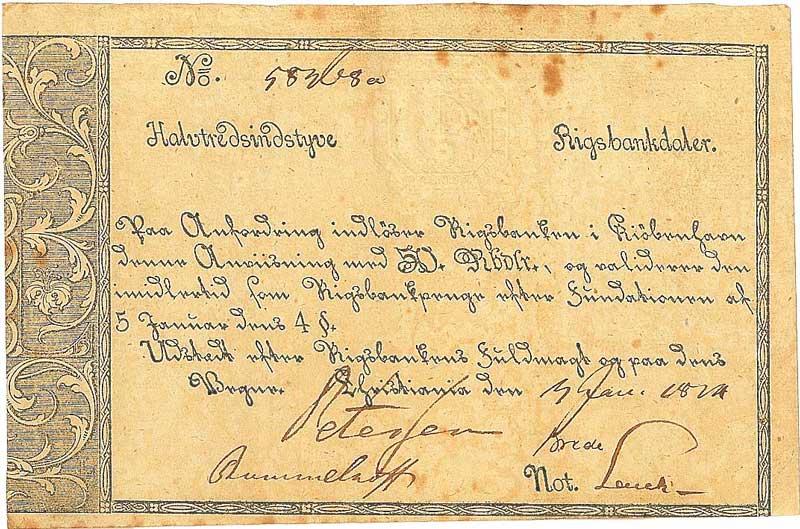 No.
Halvtredsindstyve Rigsbankdaler.
Paa Anfordring indlöser Rigsbanken i Kiöbenhavn
denne Anviisning med 50. Rbdlr., og validerer den
imidlertid som Rigsbankpenge efter Fundationen af
5 Januar dens 4 §.
Udstedt efter Rigsbankens Fuldmagt og paa dens
Vegne. Christiania den Jan. 1814
Petersen
Brede
Rummelhoff Not.